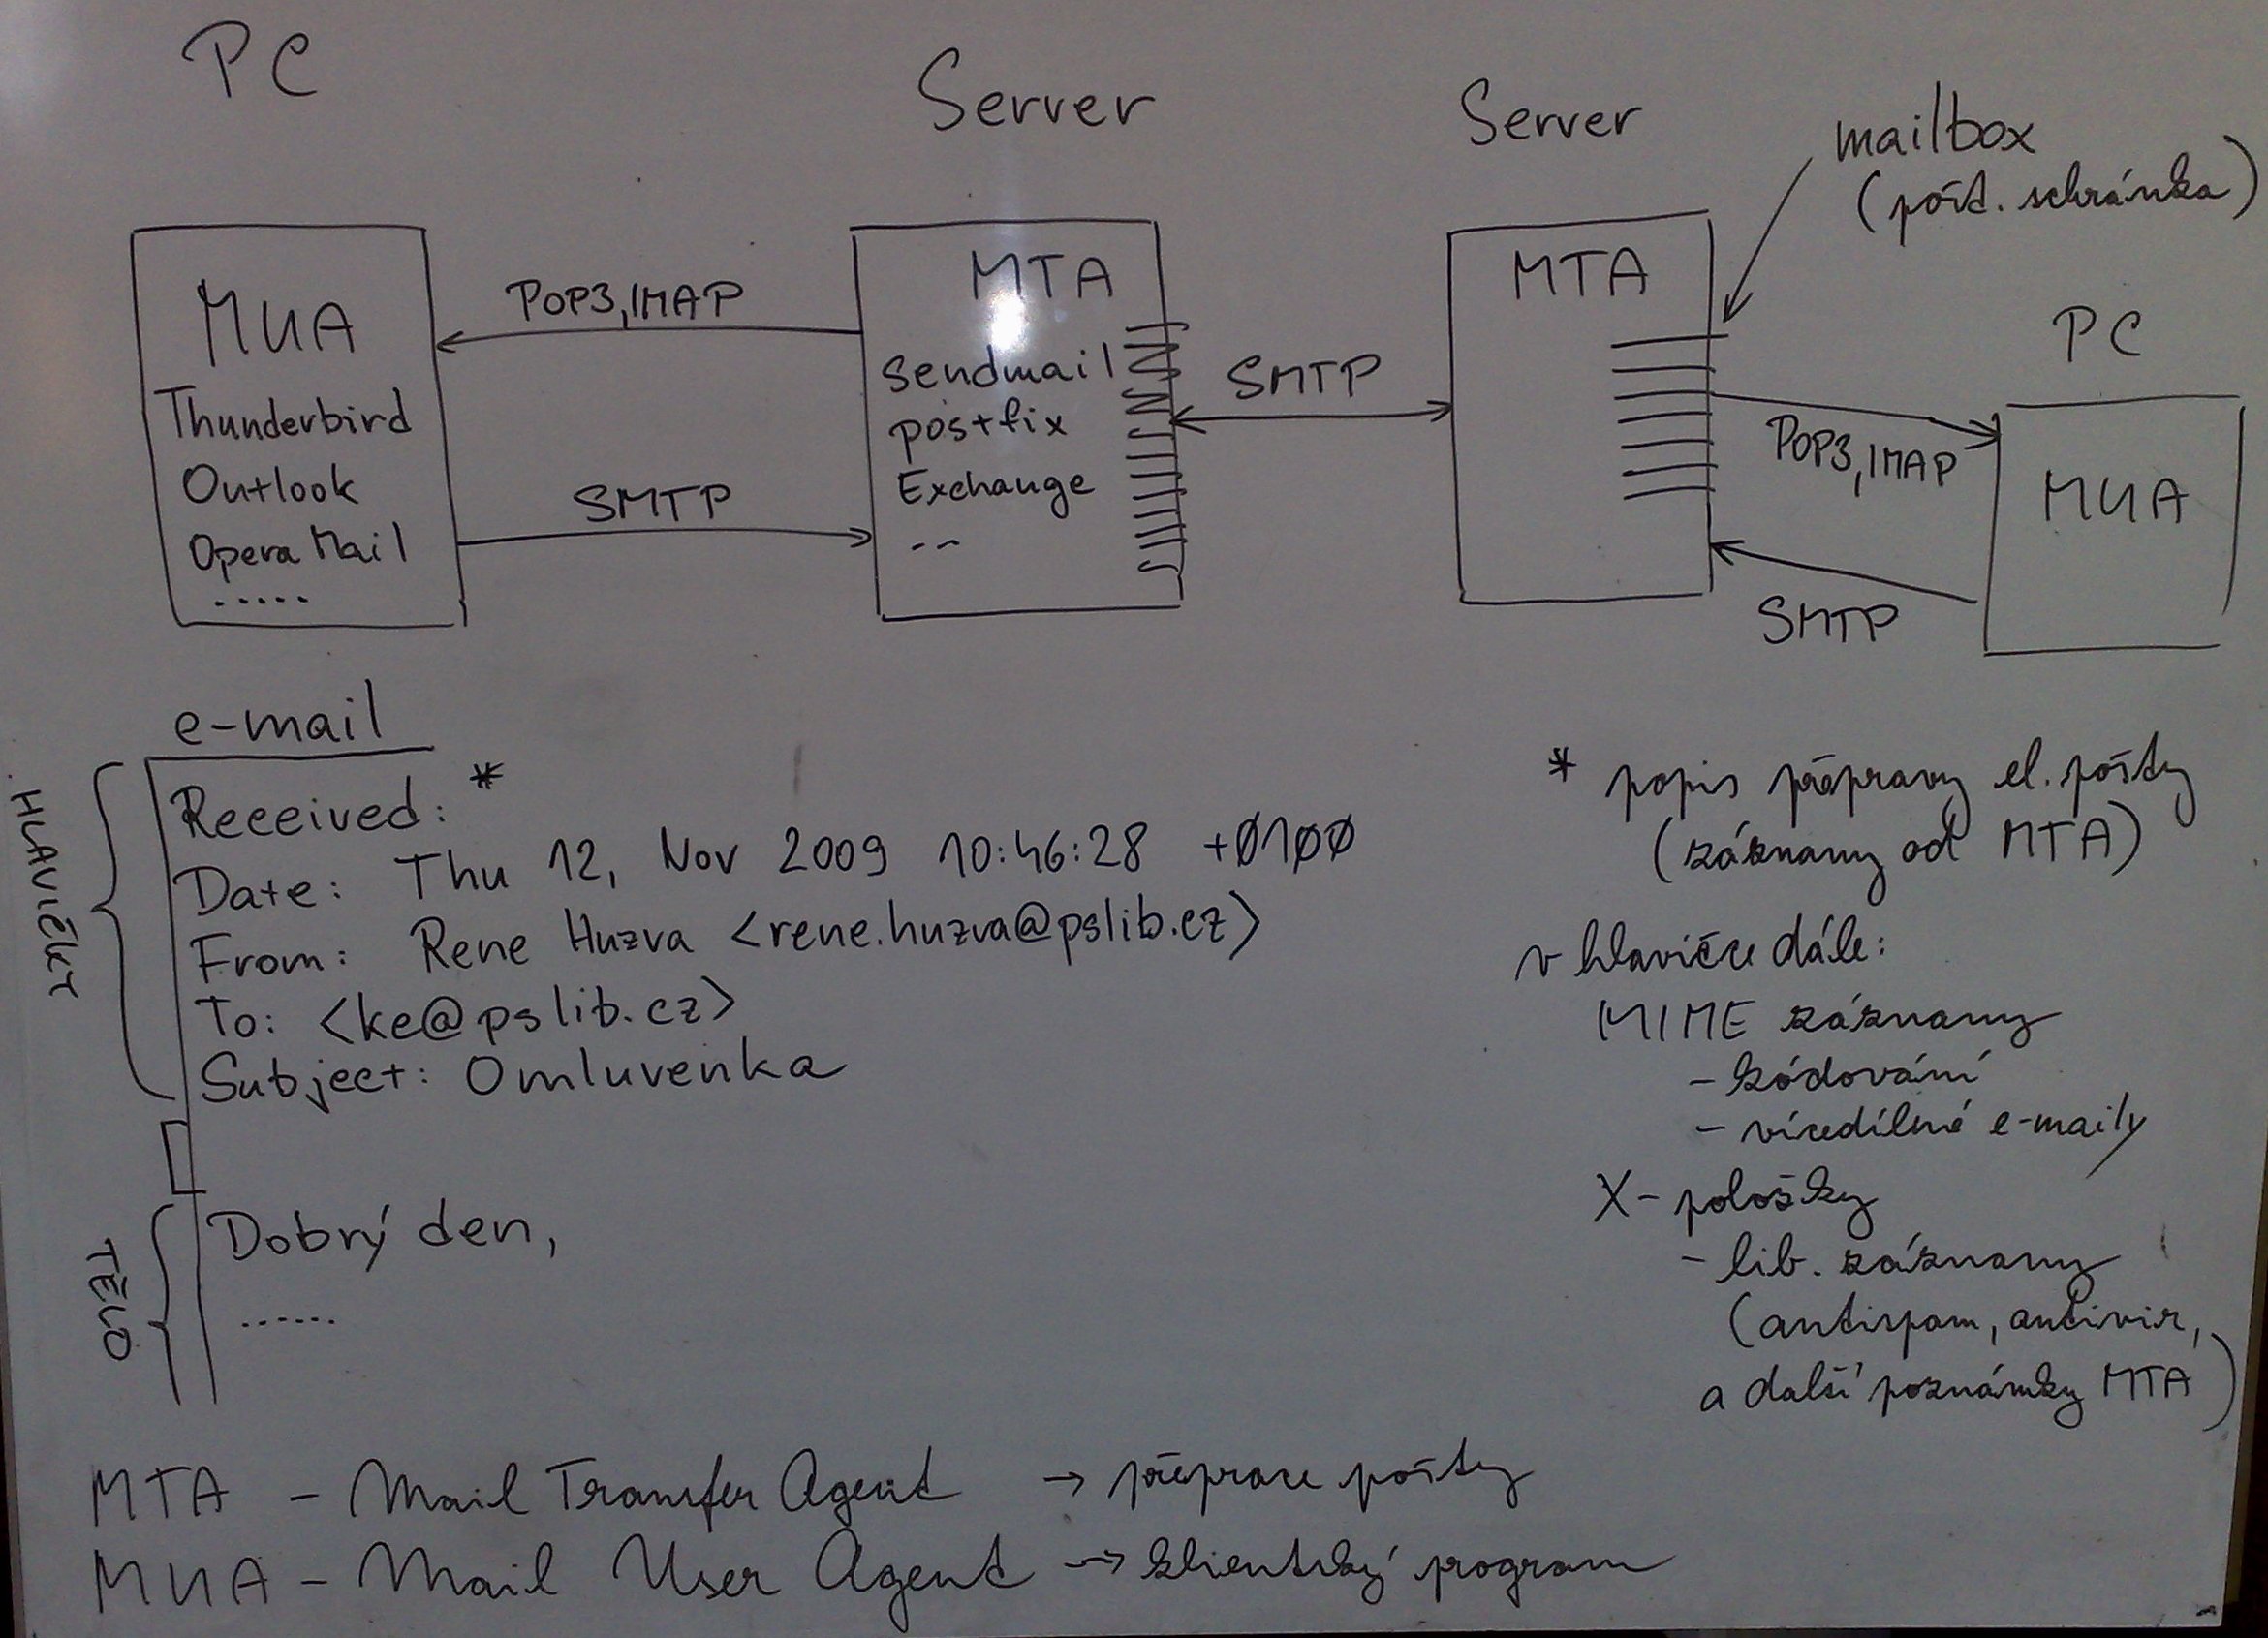 PC
Server
Server
mailbox
(pošt. schránka)
MUA
Thunderbird
Outlook
Opera Mail
.....
POP3, IMAP
SMTP
MTA
Sendmail
postfix
Exchange
--
SMTP
MTA
POP3, IMAP
SMTP
PC
MUA
e-mail
HLAVIČKY
Received: *
Date: Thu 12, Nov 2009 10:46:28 +0100
From: Rene Huzva <rene.huzva@pslib.cz>
To: <ke@pslib.cz>
Subject: Omluvenka
TĚLO
Dobrý den,
......
* popis přepravy el. pošty
(záznamy od MTA)
v hlavičce dále:
MIME záznamy
- kódování
- vícedílné e-maily
X- položky
- lib. záznamy
(antispam, antivir,
a další poznámky MTA)
MTA - Mail Transfer Agent → přeprave pošty
MUA - Mail User Agent → klientský program